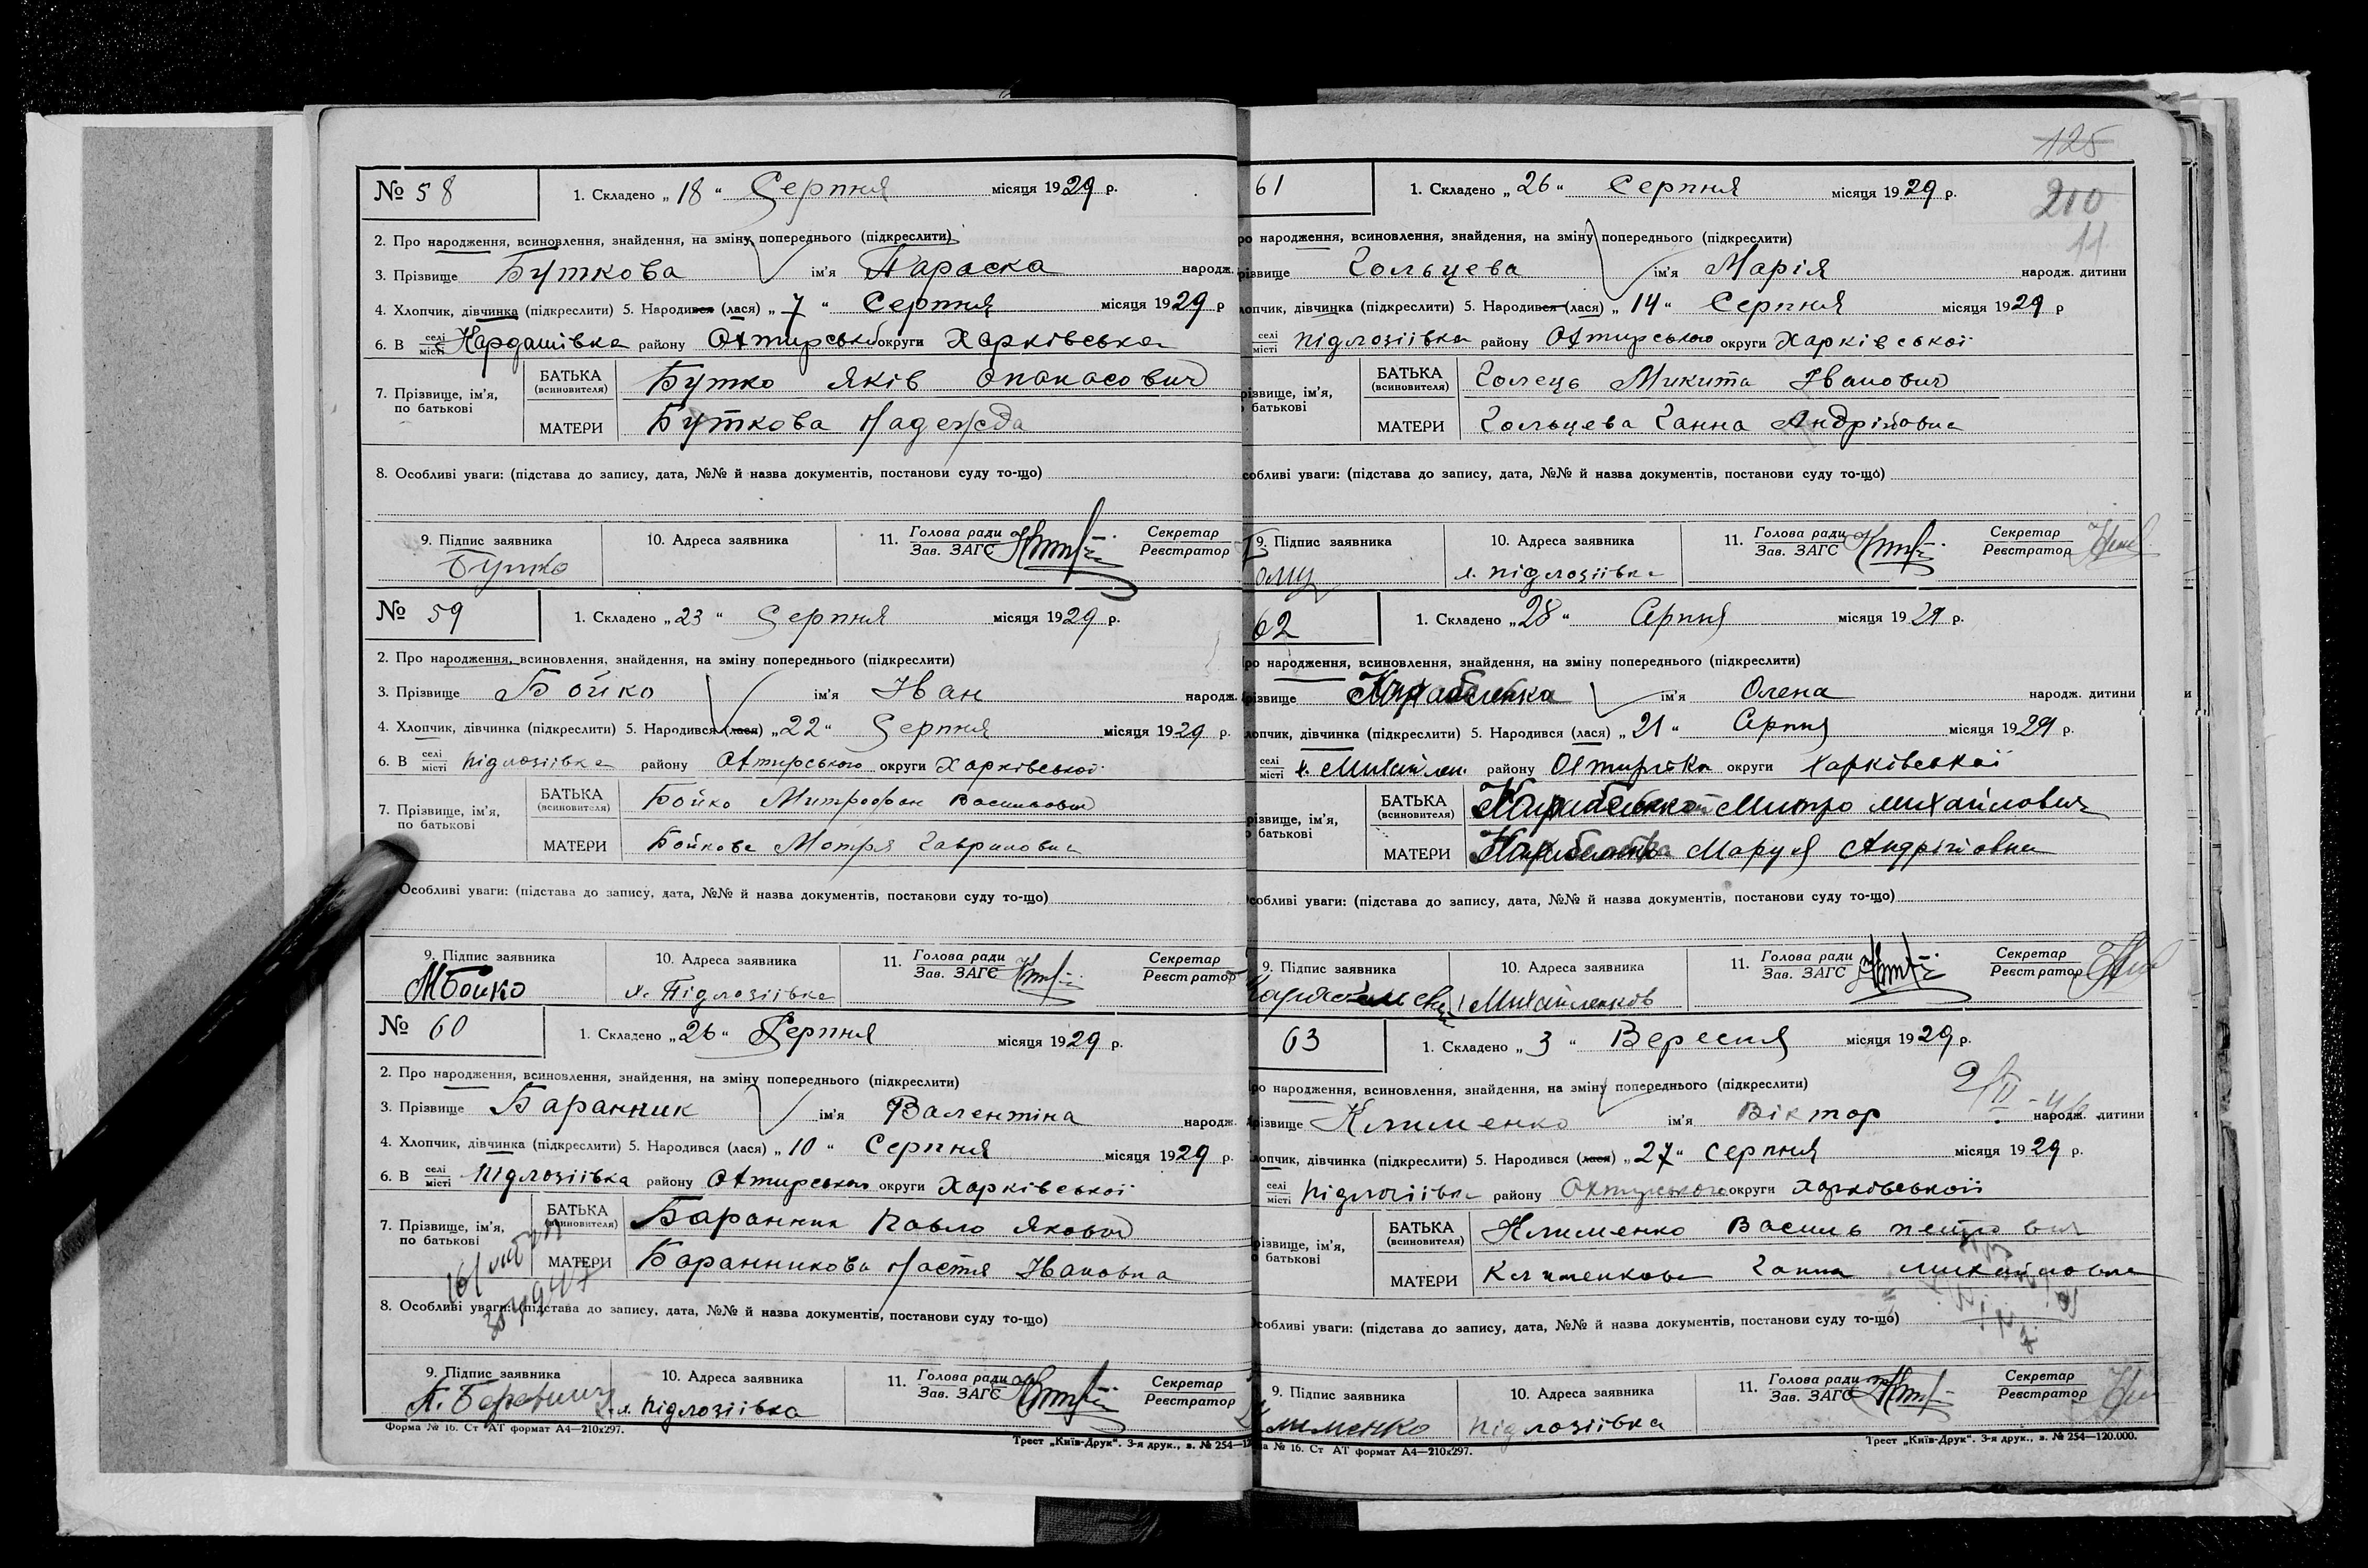 № 58
1. Складено „18“ Серпня місяця 1929 р.
2. Про народження, всиновлення, знайдення, на зміну попереднього (підкреслити)
3. Прізвище Буткова ім'я Параска народж.
4. Хлопчик, дівчинка (підкреслити) 5. Народився (лася) „7“ Серпня місяця 1929 р
6. В селі місті Кардашівка району Охтирської округи Харківська
7. Прізвище, ім'я, по батькові
БАТЬКА (всиновителя) Бутко Яків Опанасович
МАТЕРИ Буткова Надежда
8. Особливі уваги: (підстава до запису, дата, №№ й назва документів, постанови суду то-що)
9. Підпис заявника 10. Адреса заявника 11. Голова ради Зав. ЗАГС Секретар Реєстратор
Бутко
№ 59
1. Складено „23“ Серпня місяця 1929 р.
2. Про народження, всиновлення, знайдення, на зміну попереднього (підкреслити)
3. Прізвище Бойко ім'я Іван народж.
4. Хлопчик, дівчинка (підкреслити) 5. Народився (лася) „22“ Серпня місяця 1929 р.
6. В селі місті Підлозіївка району Охтирського округи Харківської
7. Прізвище, ім'я, по батькові
БАТЬКА (всиновителя) Бойко Митрофан Васильович
МАТЕРИ Бойкова Мотря Гавриловна
Особливі уваги: (підстава до запису, дата, №№ й назва документів, постанови суду то-що)
9. Підпис заявника 10. Адреса заявника 11. Голова ради Зав. ЗАГС Секретар Реєстратор
МБойко х. Підлозіївка
№ 60
1. Складено „26“ Серпня місяця 1929 р.
2. Про народження, всиновлення, знайдення, на зміну попереднього (підкреслити)
3. Прізвище Баранник ім'я Валентіна народж.
4. Хлопчик, дівчинка (підкреслити) 5. Народився (лася) „10“ Серпня місяця 1929 р.
6. В селі місті Підлозіївка району Охтирського округи Харківської
7. Прізвище, ім'я, по батькові
БАТЬКА (всиновителя) Баранник Павло Якович
МАТЕРИ Баранникова Настя Івановна
8. Особливі уваги: (підстава до запису, дата, №№ й назва документів, постанови суду то-що)
9. Підпис заявника 10. Адреса заявника 11. Голова ради Зав. ЗАГС Секретар Реєстратор
х. Підлозіївка
Форма № 16. Ст АТ формат А4—210х297.
Трест „Київ-Друк“. 3-я друк., з. № 254—
125
200
11
61
1. Складено „26“ Серпня місяця 1929 р.
ро народження, всиновлення, знайдення, на зміну попереднього (підкреслити)
різвище Гольцева ім'я Марія народж. дитини
лопчик, дівчинка (підкреслити) 5. Народився (лася) „14“ Серпня місяця 1929 р
селі місті Підлозіївка району Охтирського округи Харківської
різвище, ім'я, батькові
БАТЬКА (всиновителя) Голець Микита Іванович
МАТЕРИ Гольцева Ганна Андрійовна
собливі уваги: (підстава до запису, дата, №№ й назва документів, постанови суду то-що)
9. Підпис заявника 10. Адреса заявника 11. Голова ради Зав. ЗАГС Секретар Реєстратор
х. Підлозіївка
62
1. Складено „28“ Серпня місяця 1929 р.
ро народження, всиновлення, знайдення, на зміну попереднього (підкреслити)
різвище ім'я Олена народж. дитини
лопчик, дівчинка (підкреслити) 5. Народився (лася) „21“ Серпня місяця 1929 р.
селі місті району округи Харківської
різвище, ім'я, батькові
БАТЬКА (всиновителя) Митро Михайлович
МАТЕРИ Маруся Андріївна
собливі уваги: (підстава до запису, дата, №№ й назва документів, постанови суду то-що)
9. Підпис заявника 10. Адреса заявника 11. Голова ради Зав. ЗАГС Секретар Реєстратор
Михайленков
63
1. Складено „3“ Вересня місяця 1929 р.
ро народження, всиновлення, знайдення, на зміну попереднього (підкреслити)
різвище Клименко ім'я Віктор народж. дитини
лопчик, дівчинка (підкреслити) 5. Народився (лася) „27“ серпня місяця 1929 р.
селі місті Підлозіївка району Охтирського округи Харківської
різвище, ім'я, батькові
БАТЬКА (всиновителя) Клименко Василь Петрович
МАТЕРИ Клименкова Ганна Михайловна
собливі уваги: (підстава до запису, дата, №№ й назва документів, постанови суду то-що)
9. Підпис заявника 10. Адреса заявника 11. Голова ради Зав. ЗАГС Секретар Реєстратор
лименко Підлозіївка
№ 16. Ст АТ формат А4—210х297.
Трест „Київ-Друк“. 3-я друк., з. № 254—120.000.